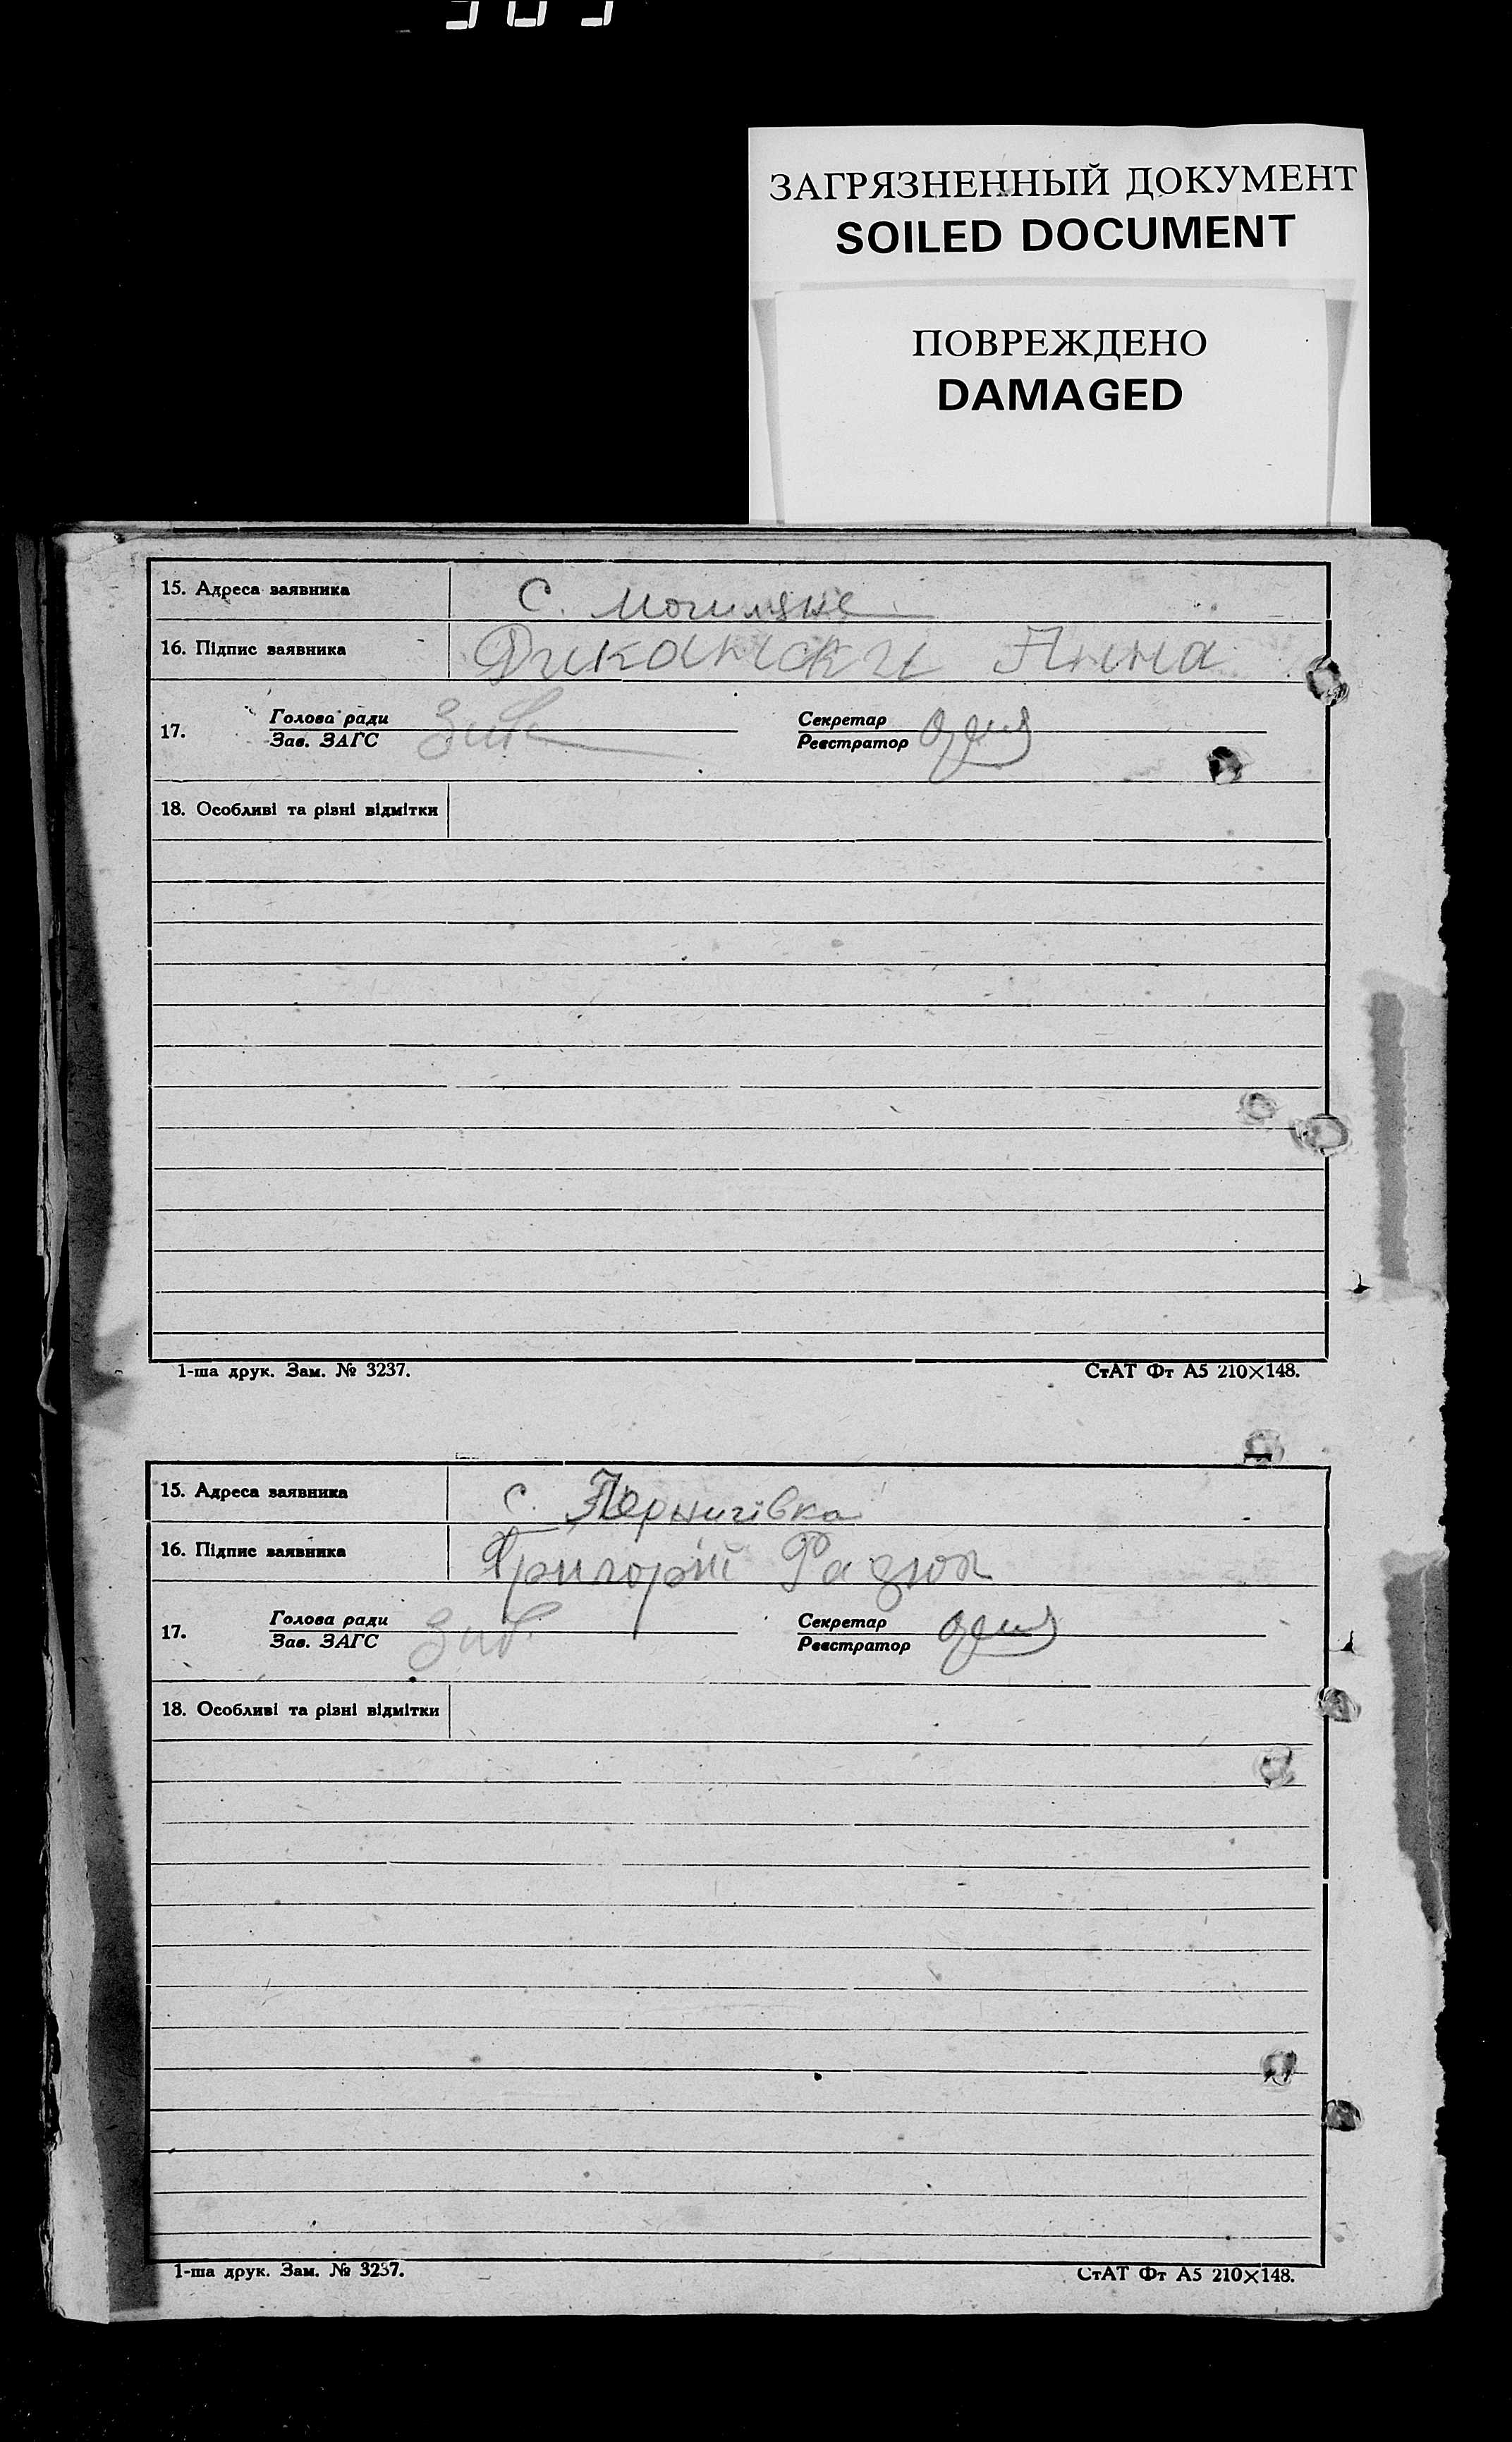 ЗАГРЯЗНЕННЫЙ ДОКУМЕНТ
SOILED DOCUMENT
ПОВРЕЖДЕНО
DAMAGED
15. Адреса заявника С. Могиляне
16. Підпис заявника Дикански Анна
17. Голова ради Секретар
Зав. ЗАГС Реєстратор
18. Особливі та різні відмітки
1-ша друк. Зам. № 3237. СтАТ Фт А5 210×148.
15. Адреса заявника с.
16. Підпис заявника Григорій
17. Голова ради Секретар
Зав. ЗАГС Реєстратор
18. Особливі та різні відмітки
1-ша друк. Зам. № 3237. СтАТ Фт А5 210×148.